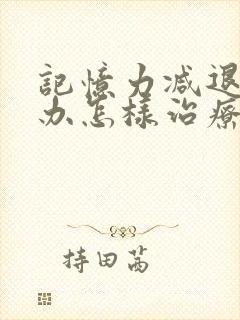 記憶力減退
办怎樣治療
持田茜